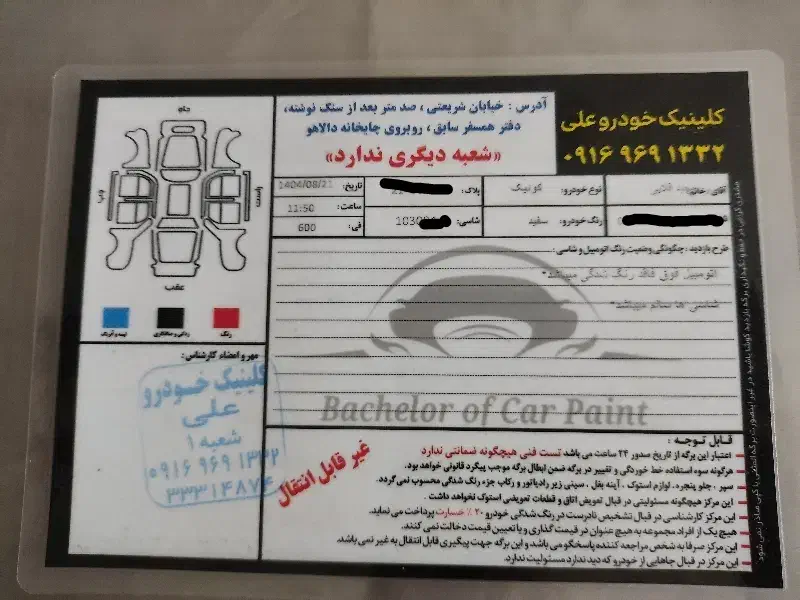 کلینیک خودرو علی
۰۹۱۶ ۹۶۹ ۱۳۳۲
آدرس : خیابان شریعتی ، صد متر بعد از سنگ نوشته،
دفتر همسفر سابق ، روبروی چایخانه دالاهو
«شعبه دیگری ندارد»
آقای/خانم:
نوع خودرو: کوئیک
پلاک:
تاریخ: 1404/08/21
رنگ خودرو: سفید
شاسی:
ساعت: 11:50
فی: 600
طرح بازدید : چگونگی وضعیت رنگ اتومبیل و شاسی :
اتومبیل فوق فاقد رنگ شدگی میباشد*
شاسی ها سالم میباشد*
Bachelor of Car Paint
جلو
راست
چپ
عقب
رنگ
لیسه گیری
مهر و امضاء کارشناس:
کلینیک خودرو
علی
شعبه ۱
۰۹۱۶ ۹۶۹ ۱۳۳۲
۳۳۳۱۴۸۷۴
غیر قابل انتقال
قابل توجه :
اعتبار این برگه از تاریخ صدور ۲۴ ساعت می باشد تست فنی هیچگونه ضمانتی ندارد
هرگونه سوء استفاده خط خوردگی و تغییر در برگه ضمن ابطال برگه موجب پیگرد قانونی خواهد بود.
سپر ، جلو پنجره ، لوازم استوک ، آینه بغل ، سینی زیر رادیاتور و رکاب جزء رنگ شدگی محسوب نمی گردد.
این مرکز هیچگونه مسئولیتی در قبال تعویض اتاق و قطعات تعویضی استوک نخواهد داشت
این مرکز کارشناسی در قبال تشخیص نادرست در رنگ شدگی خودرو ۲۰٪ خسارت پرداخت می نماید.
هیچ یک از افراد مجموعه به هیچ عنوان در قیمت گذاری و یا تعیین قیمت دخالت نمی کنند.
این مرکز صرفا به شخص مراجعه کننده پاسخگو می باشد و این برگه جهت پیگیری قابل انتقال به غیر نمی باشد.
این مرکز در قبال جاهایی از خودرو که دید ندارد مسئولیت ندارد.